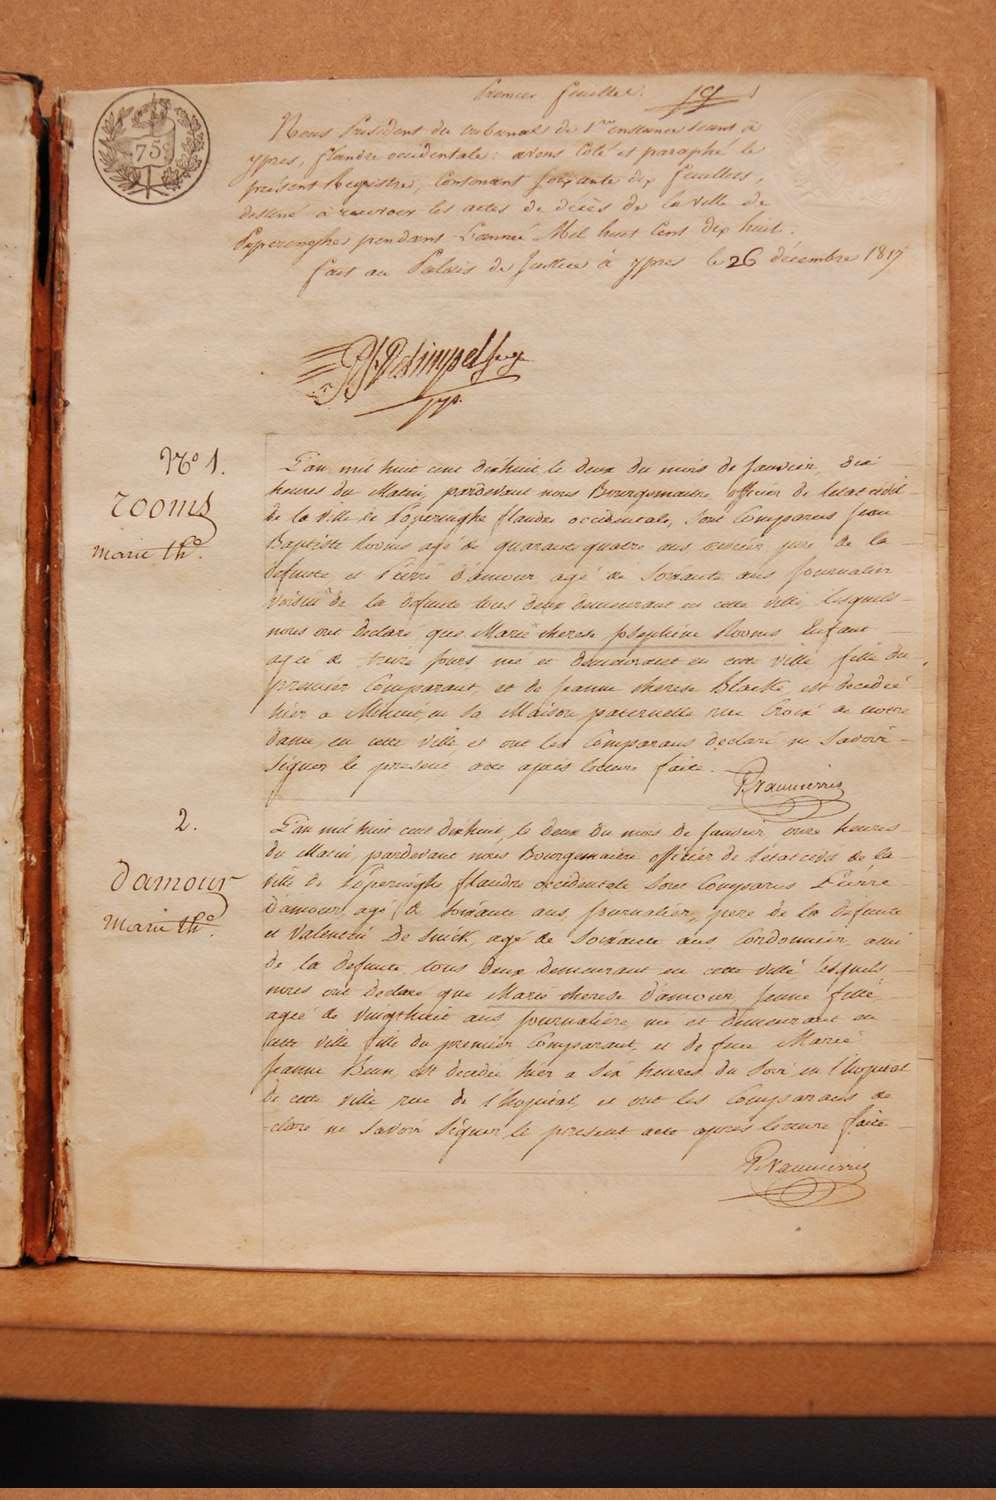 Premier feuillet.
75
Nous Président du tribunal de 1re instance séant à
ypres, flandre occidentale: avons coté et paraphé le
présent Registre, contenant soixante dix feuillets,
destiné à recevoir les actes de décès de la ville de
Poperenghe pendant L'année Mil huit Cent dix huit.
fait au Palais de Justice à ypres le 26 décembre 1817
No 1.
rooms
marie the.
L'an mil huit cent dixhuit le deux du mois de Janvier, dix
heures du Matin, pardevant nous Bourgemaitre officier de l'etat civil
de la ville de Poperinghe flandre occidentale, sont Comparus Jean
Baptiste Rooms agé de quarante quatre ans pere de la
defunte et Pierre d'amour agé de soixante ans Journalier
voisin de la defunte tous deux demeurant en cette ville, lesquels
nous ont declaré que Marie therese Josephine Rooms Enfant
agée de treize Jours née et demeurant en cette ville fille du
premier Comparant, et de Jeanne therese Blacke, est decedeé
hier a Minuit, en sa Maison paternelle rue Croix de notre
dame, en cette ville et ont les Comparans declaré ne savoir
signer le present acte après lecture faite.
2.
d'amour
Marie the.
L'an mil huit cent dixhuit, le deux du mois de Janvier onze heures
du Matin, pardevant nous Bourgemaitre officier de l'état civil de la
ville de Poperinghe flandre occidentale sont Comparus Pierre
D'amour, agé de soixante ans, Journalier, pere de la defunte
et Valentin De Snick, agé de soixante ans Cordonnier, ami
de la defunte, tous deux demeurant en cette ville lesquels
nous ont declaré que Marie therese D'amour, Jeune fille
agée de vingthuit ans Journaliere, née et demeurant en
cette ville fille du premier Comparant, et de feue Marie
Jeanne Beun, est decedée hier a six heures du soir en l'hopital
de cette ville rue de l'hopital, et ont les Comparans de
clare ne savoir signer, le present acte apres lecture faite